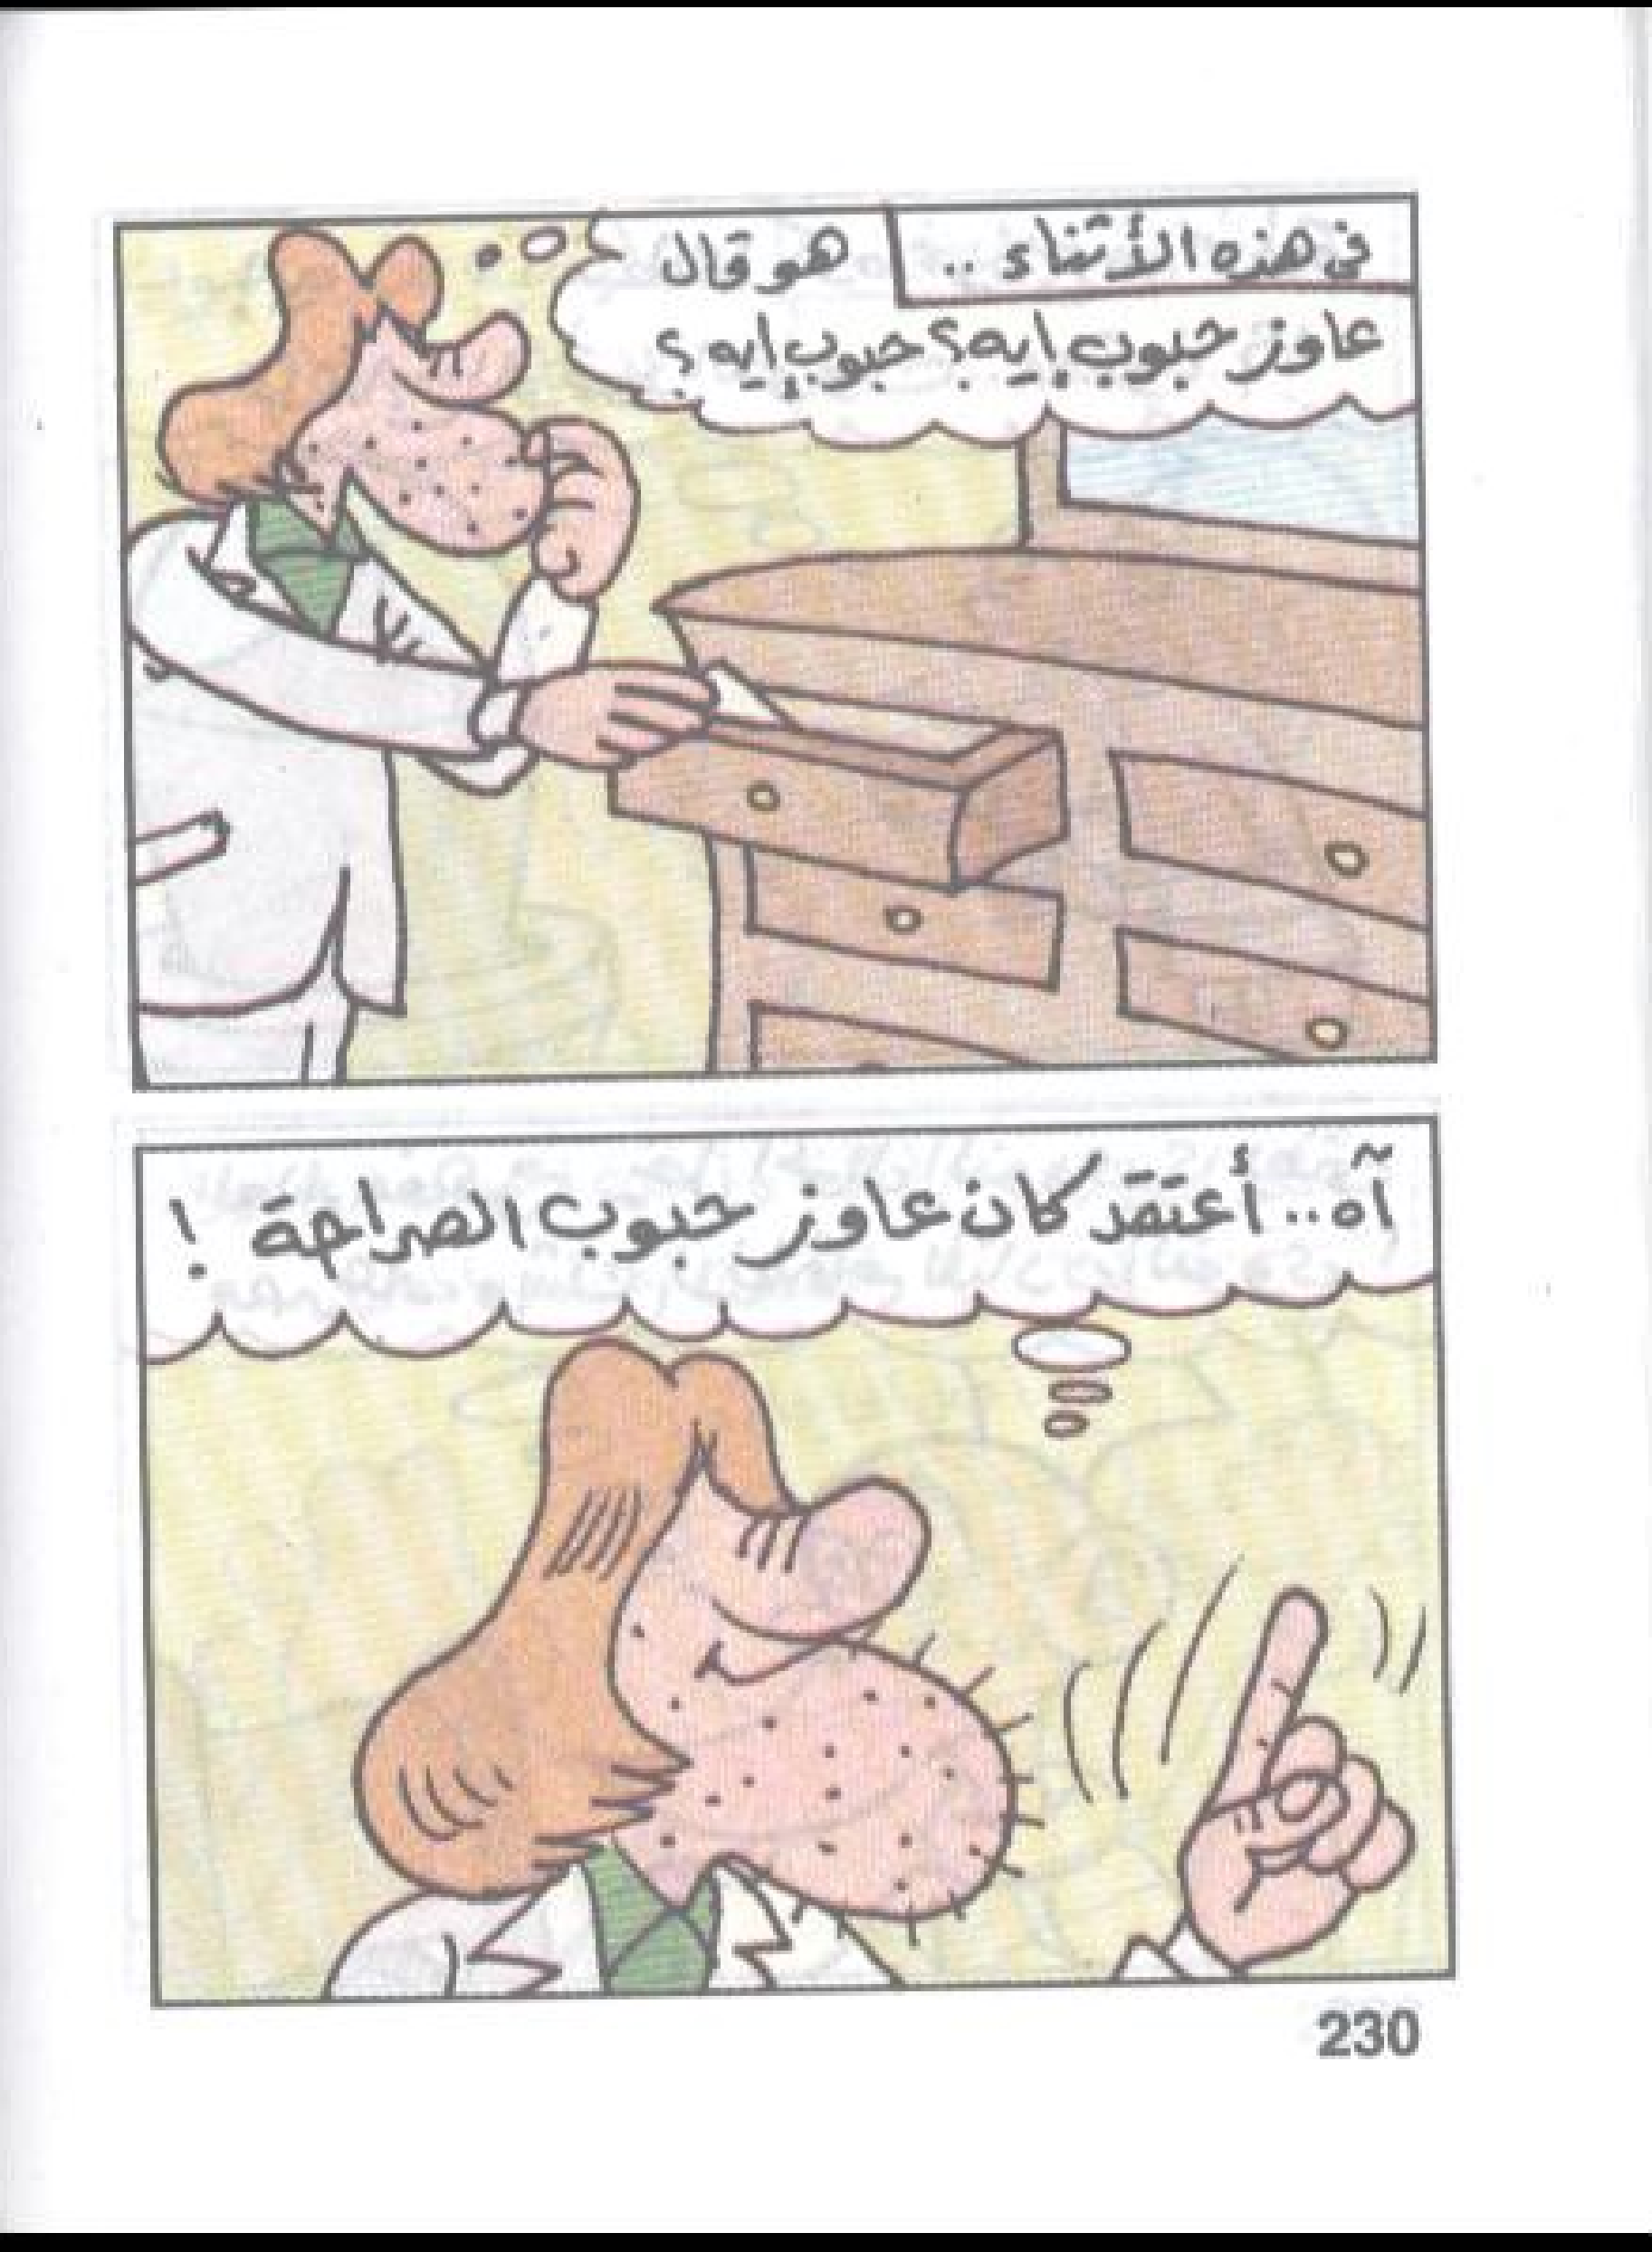 في هذه الأثناء ..
هو قال
عاوز حبوب إيه؟ حبوب إيه؟
آه.. أعتقد كان عاوز حبوب الصراحة !
230